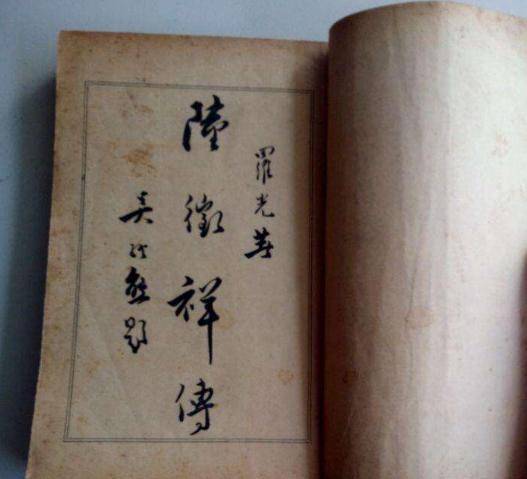 羅光著
陸徵祥傳
吳經熊題